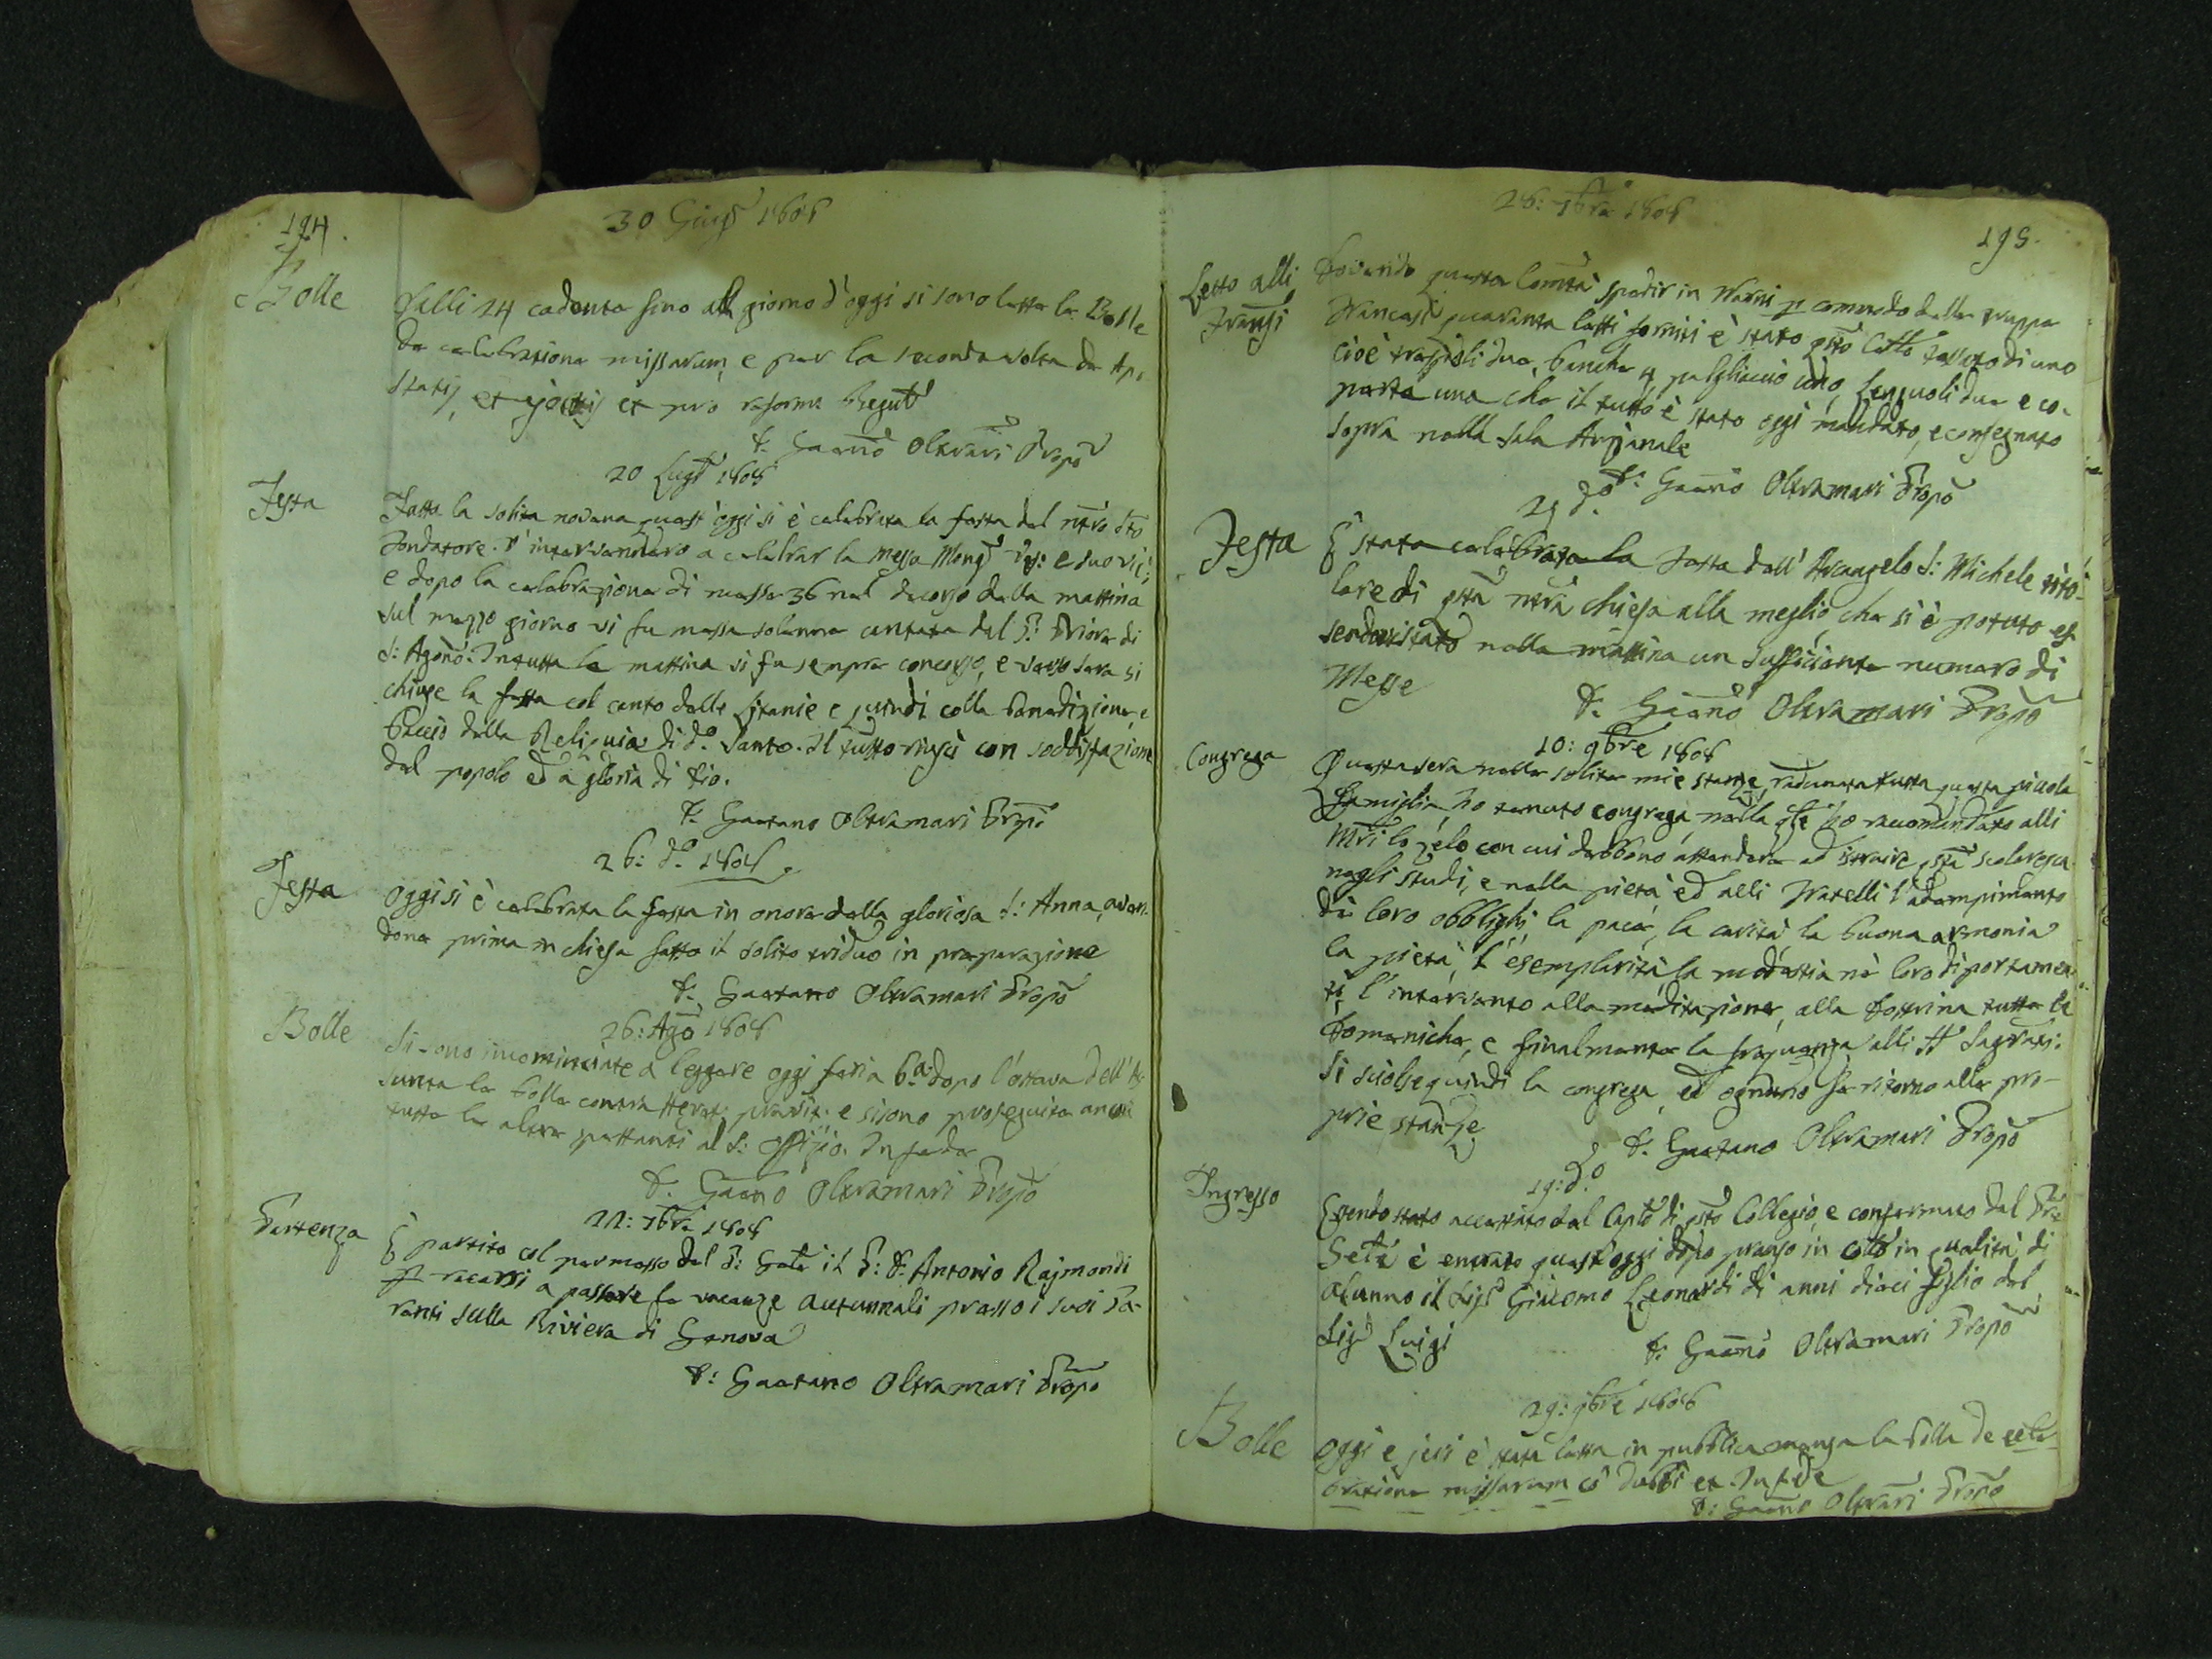 194.
30 Giug° 1808
Bolle
Dalli 24 cadente sino al giorno d'oggi si sono lette le Bolle
de celebratione missarum, e per la seconda volta de Apo
statis, et ejectis et pro reforma Regul
D. Gaeno Oltrari Propo
20 Lug° 1808
Festa
Fatta la solita novena quest'oggi si è celebrata la festa del nro Sto
Fondatore. V'intervennero a celebrar la Messa Mong e suo Vic:;
e dopo la celebrazione di messe 36 nel decorso della mattina
sul mezzo giorno vi fu messa solenne cantata dal P. Priore di
S: Agono: In tutta la mattina vi fu sempre concorso, e verso sera si
chiuse la festa col canto delle Litanie e quindi colla Benedizione, e
baccio della Reliquia di do. Santo. Il tutto riuscì con soddisfazione
del popolo ed a gloria di Dio.
D. Gaetano Oltramari Propo
26: do. 1808.
Festa
Oggi si è celebrata la festa in onore della gloriosa S: Anna, aven
done prima in chiesa fatto il solito triduo in preparazione
D. Gaetano Oltramari Propo
26: Ago 1808
Bolle
Si sono incominciate a leggere oggi feria 6.a dopo l'ottava dell'As
sunta la bolla contra Heret: pravit: e si sono proseguite ancora
tutte le altre spettanti al S: Offizio. In fede
D. Gaeno Oltramari Propo
22: 7bre 1808
Partenza
È partito col permesso del P: Gnle il P: D. Antonio Rajmondi
p recarsi a passare le vacanze autunnali presso i suoi Pa-
renti sulla Riviera di Genova
D: Gaetano Oltramari Propo
28: 7bre 1808
195.
Letto alli
Franzi
Dovendo questa Comtà spedir in Narni p commodo della truppa
Francese quaranta letti forniti è stato qsto Collo tassato di uno
cioè trespoli due, banche 4, pagliaccio uno, Lenzuoli due e co-
perta una che il tutto è stato oggi mandato, e consegnato
sopra nella sala
D: Gaeno Oltramari Propo
29 do
Festa
È stata celebrata la festa dell'Arcangelo S: Michele tito-
lare di qsta nra chiesa alla meglio, che si è potuto es-
sendovi stato nella mattina un sufficiente numero di
Messe
D. Gaeno Oltramari Propo
10: 9bre 1808
Congrega
Questa sera nelle solite mie stanze, radunata tutta questa piccola
Famiglia, ho tenuto congrega, nella qle ho raccomandato alli
Mri lo zelo con cui debbono attendere ad istruire qsta scolaresca
negli studi, e nella pietà ed alli Fratelli l'adempimento
di loro obblighi, la pace, la carità, la buona armonia
la pietà, l'esemplarità, la modestia nè loro diportamen
ti, l'intervento alla meditazione, alla Dottrina tutte le
Domeniche, e finalmente la frequenza alli SS Sagrati.
Si sciolse quindi la congrega, ed ognuno fe ritorno alle pro-
prie stanze
D. Gaetano Oltramari Propo
19: do
Ingresso
Essendo stato accettato dal Caplo di qsto Collegio, e confermato dal Pre
Gnle è entrato quest'oggi dopo pranzo in Collo in qualità di
alunno il Sig Giacomo Leonardi di anni dieci figlio del
Sig Luigi
D: Gaeno Oltramari Propo
29: 9bre 1808
Bolle
Oggi e jeri è stata letta in pubblica mensa la Bolla de cele
bratione missarum co' Dubbi et. In fede
D: Gaeno Oltrari Propo